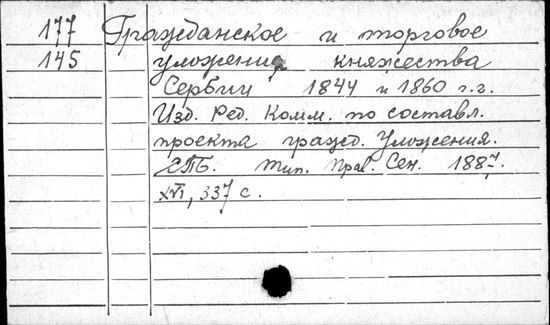 177 Гражданское и торговое
145 уложения княжества
Сербии 1844 и 1860 г.г.
Изд. Ред. Комм. по составл.
проекта гражд. Уложения.
СПБ. Тип. Прав. Сен. 1887.
XVI, 337 с.